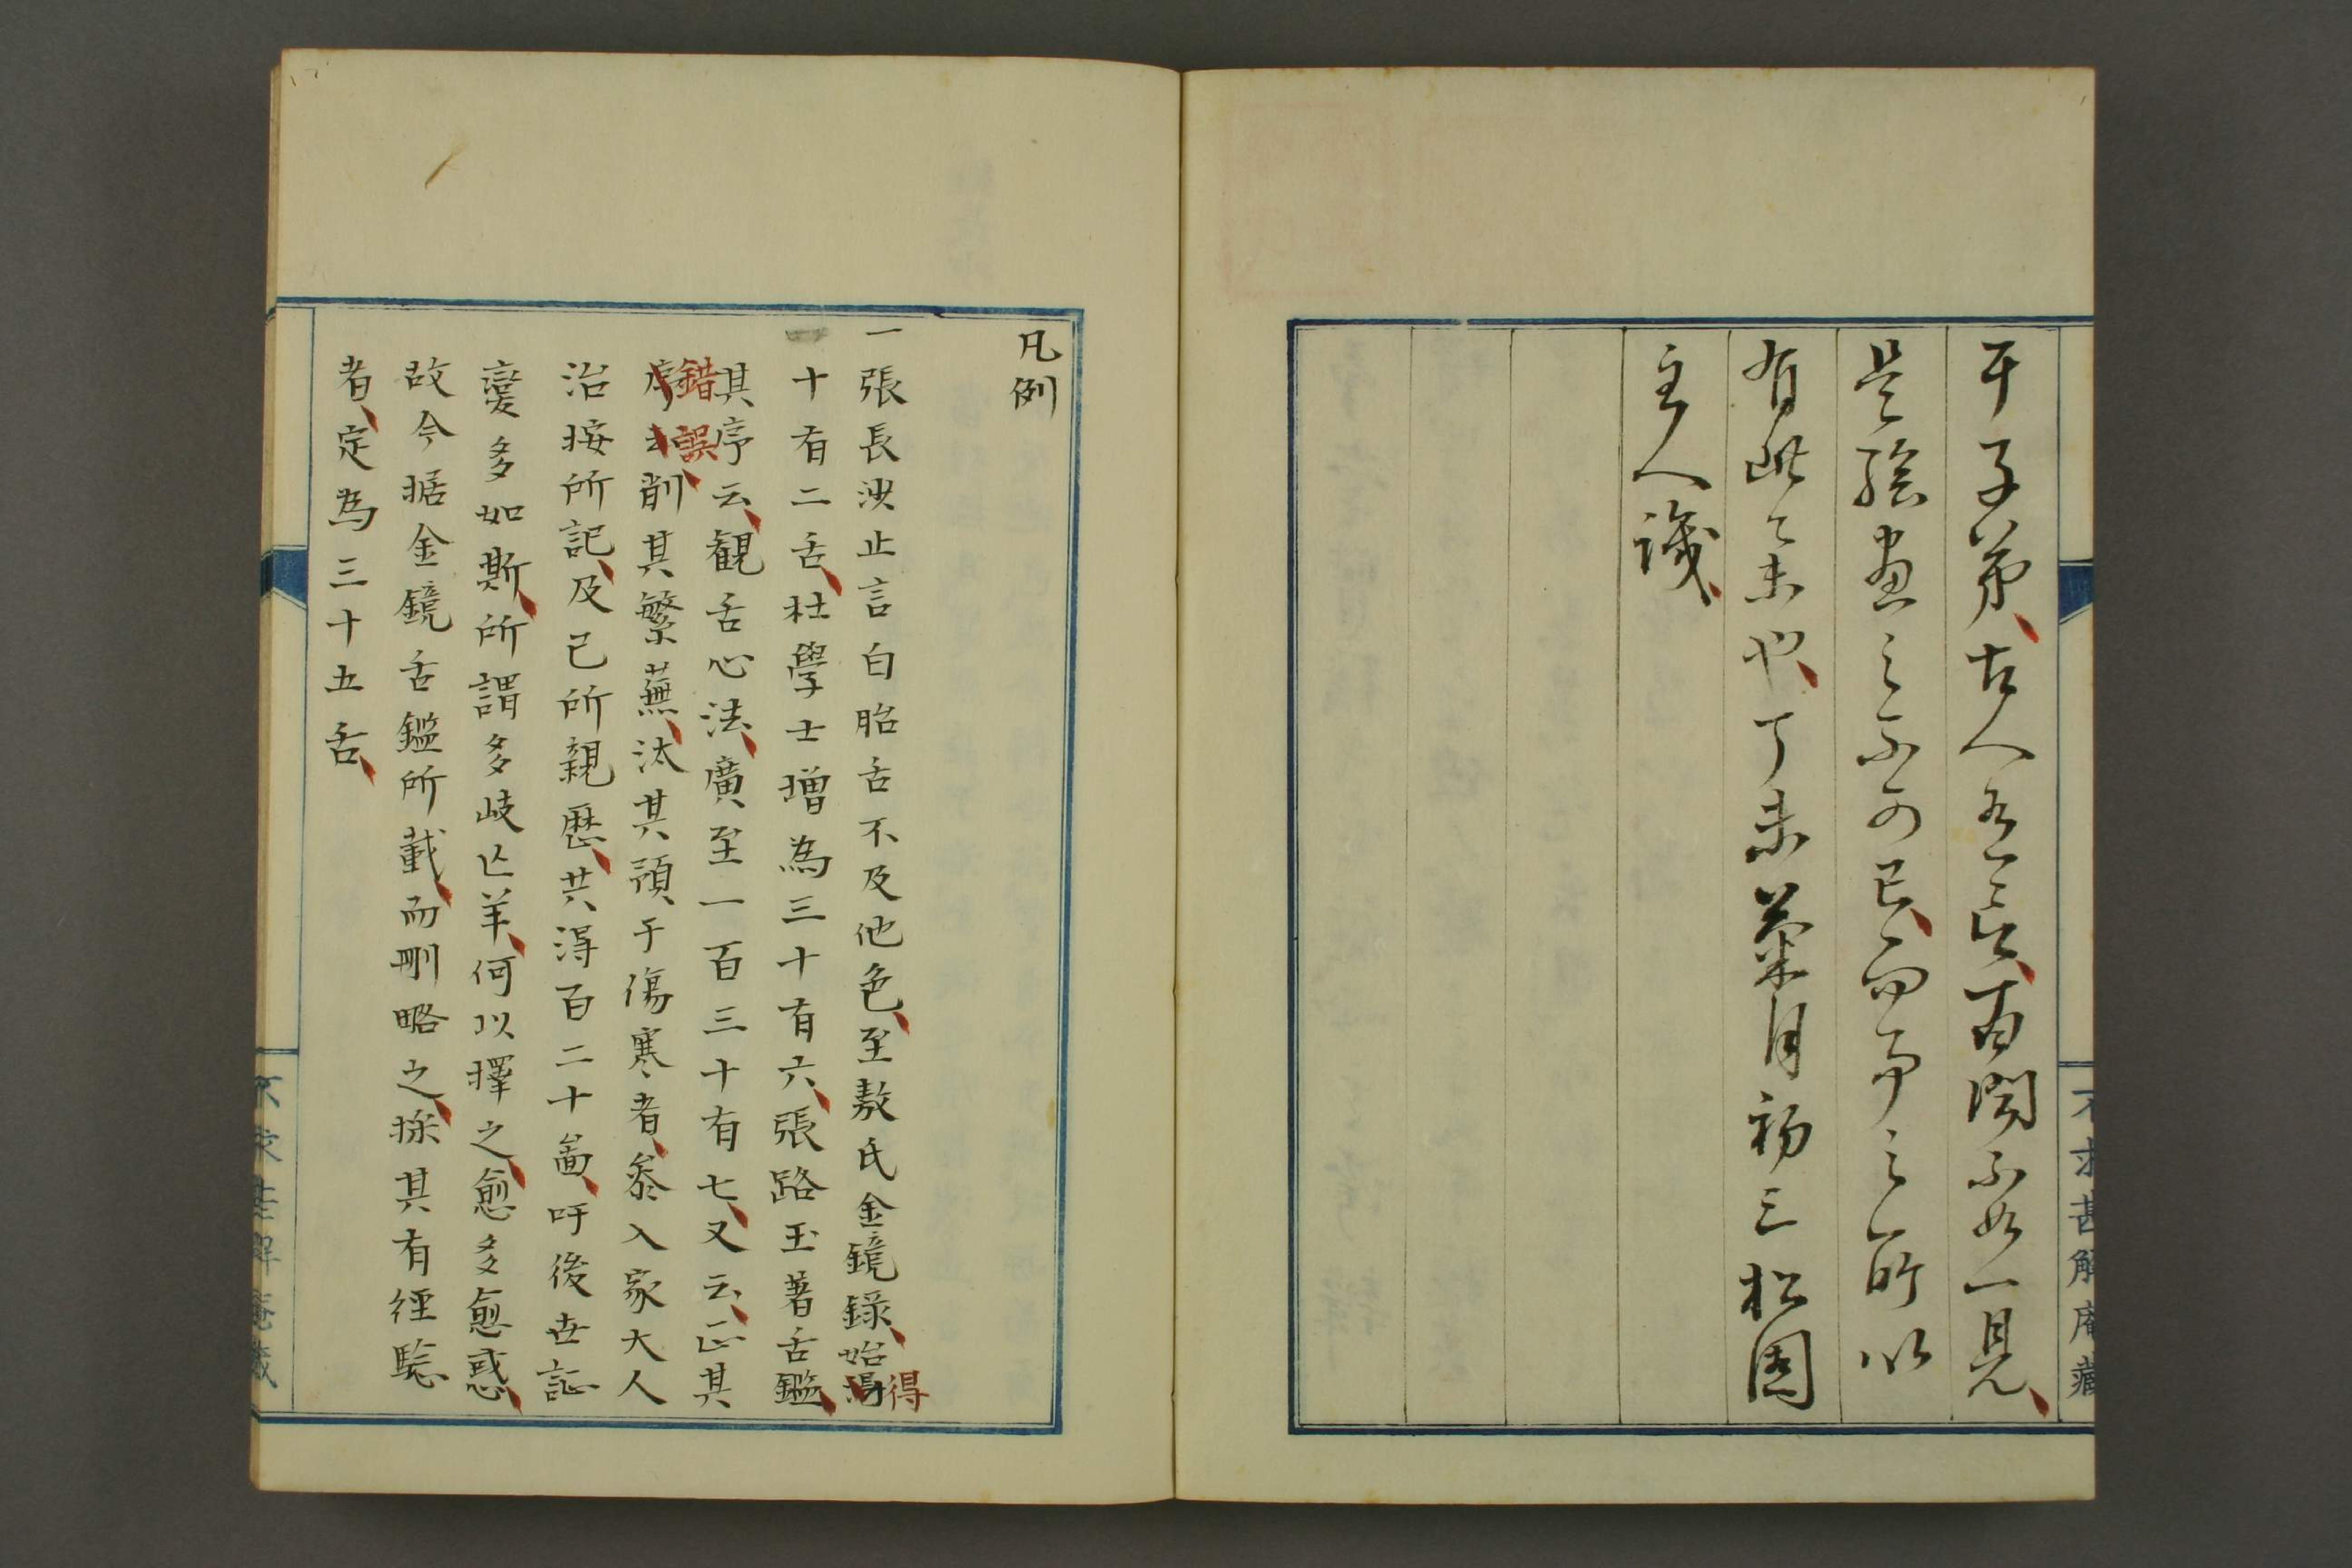 于子弟、古人有言、百聞不如一見、
是繪畫之不可已、而予之所以
有此之末也、丁未菊月初三松園
主人識、
不求甚解庵藏
凡例
一張長沙止言白胎舌不及他色、至敖氏金鏡錄、始得
十有二舌、杜學士增為三十有六、張路玉著舌鑑、
其序云、觀舌心法、廣至一百三十有七、又云、正其
錯誤、削其繁蕪、汰其無預于傷寒者、參入家大人
治按所記、及己所親歷、共得百二十啚、吁後世証
變多如斯、所謂多岐亡羊、何以擇之、愈多愈惑、
故今據金鏡舌鑑所載、而刪略之、採其有徑驗
者、定為三十五舌、
不求甚解庵藏